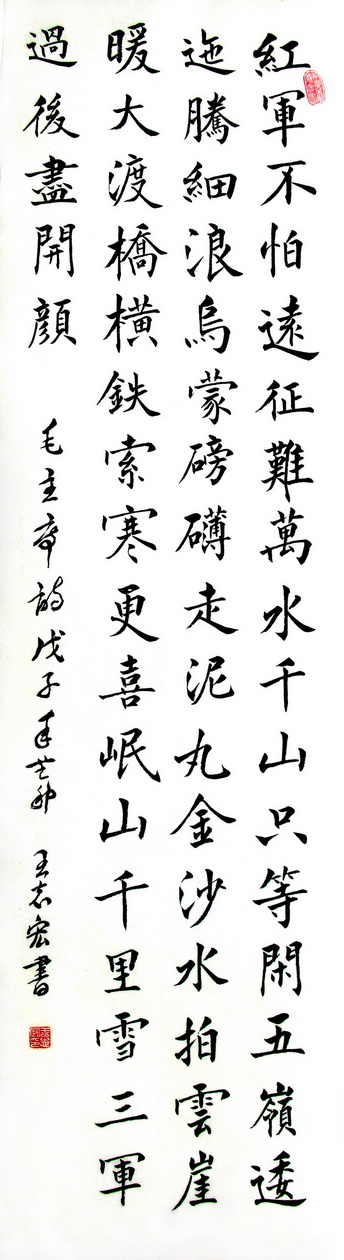 紅軍不怕遠征難萬水千山只等閑五嶺逶
迤騰細浪烏蒙磅礴走泥丸金沙水拍雲崖
暖大渡橋橫鉄索寒更喜岷山千里雪三軍
過後盡開顔
毛主席詩戊子年 王志宏書